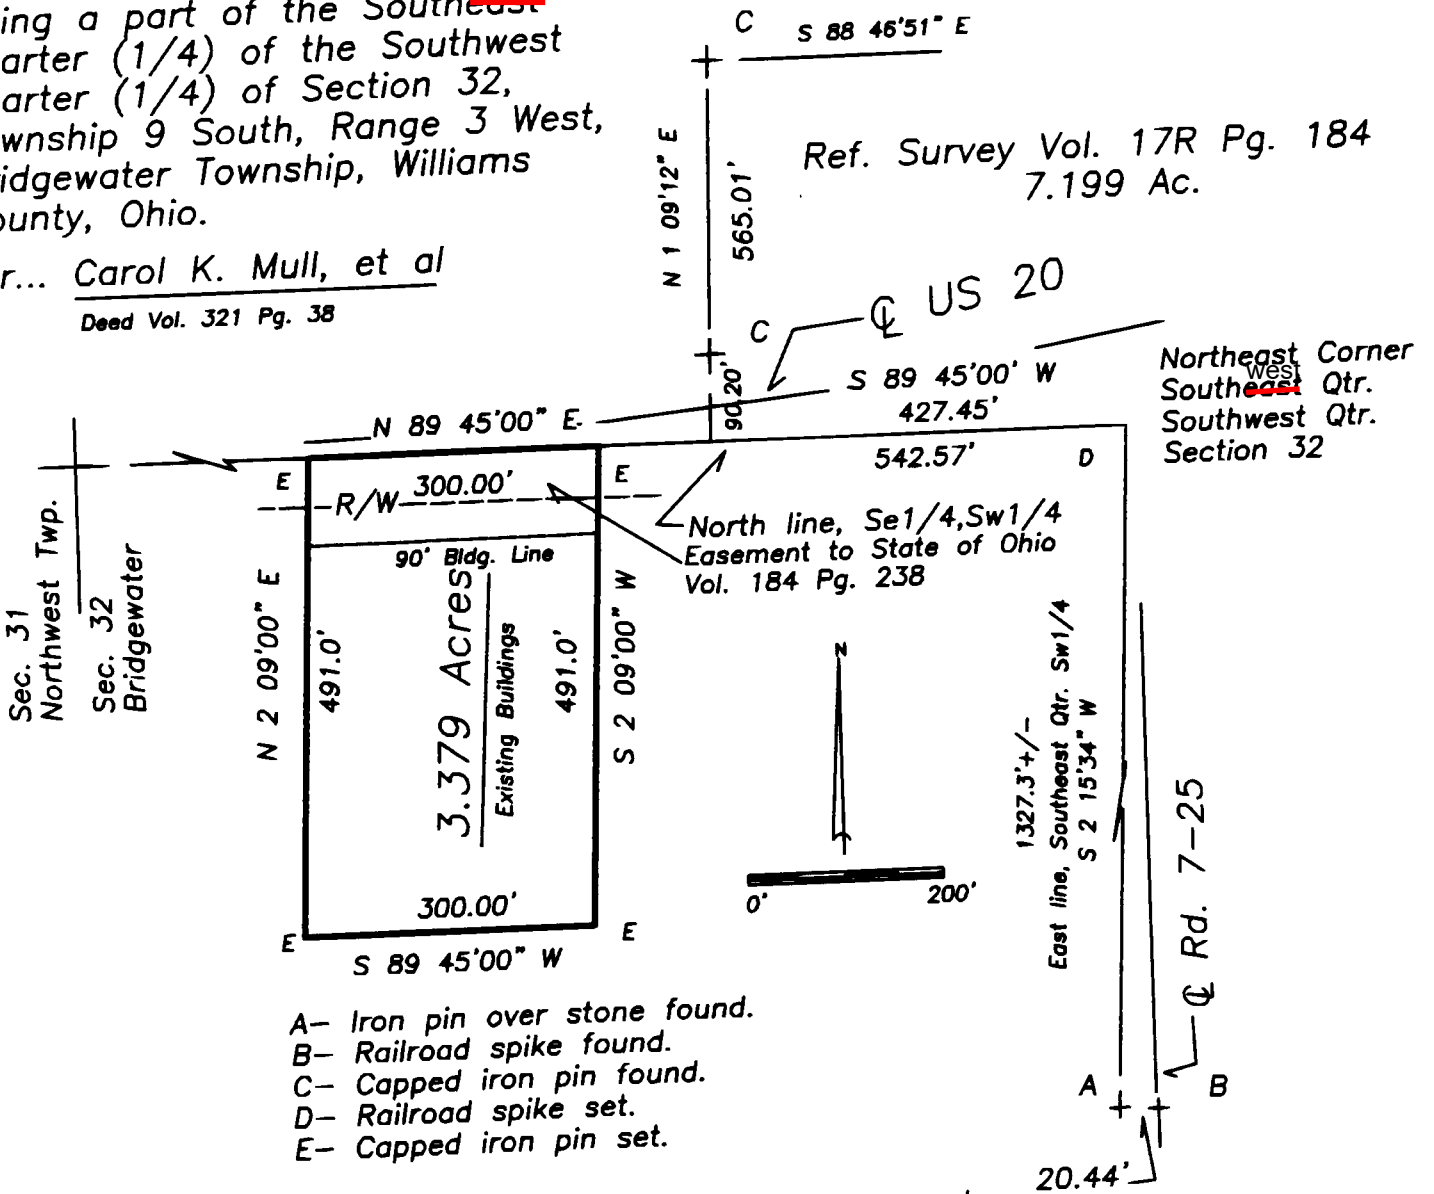 ing a part of the Southeast
arter (1/4) of the Southwest
arter (1/4) of Section 32,
wnship 9 South, Range 3 West,
idgewater Township, Williams
ounty, Ohio.
r... Carol K. Mull, et al
Deed Vol. 321 Pg. 38
C
S 88 46'51" E
N 1 09'12" E
565.01'
Ref. Survey Vol. 17R Pg. 184
7.199 Ac.
C
℄ US 20
90.20'
S 89 45'00' W
427.45'
N 89 45'00" E
542.57'
D
Northeast Corner
west
Southeast Qtr.
Southwest Qtr.
Section 32
E
E
R/W
300.00'
90' Bldg. Line
North line, Se1/4,Sw1/4
Easement to State of Ohio
Vol. 184 Pg. 238
Sec. 31
Northwest Twp.
Sec. 32
Bridgewater
N 2 09'00" E
491.0'
3.379 Acres
Existing Buildings
491.0'
S 2 09'00" W
N
0'
200'
1327.3'+/-
East line, Southeast Qtr. Sw1/4
S 2 15'34" W
℄ Rd. 7-25
300.00'
E
E
S 89 45'00" W
A- Iron pin over stone found.
B- Railroad spike found.
C- Capped iron pin found.
D- Railroad spike set.
E- Capped iron pin set.
A
B
20.44'